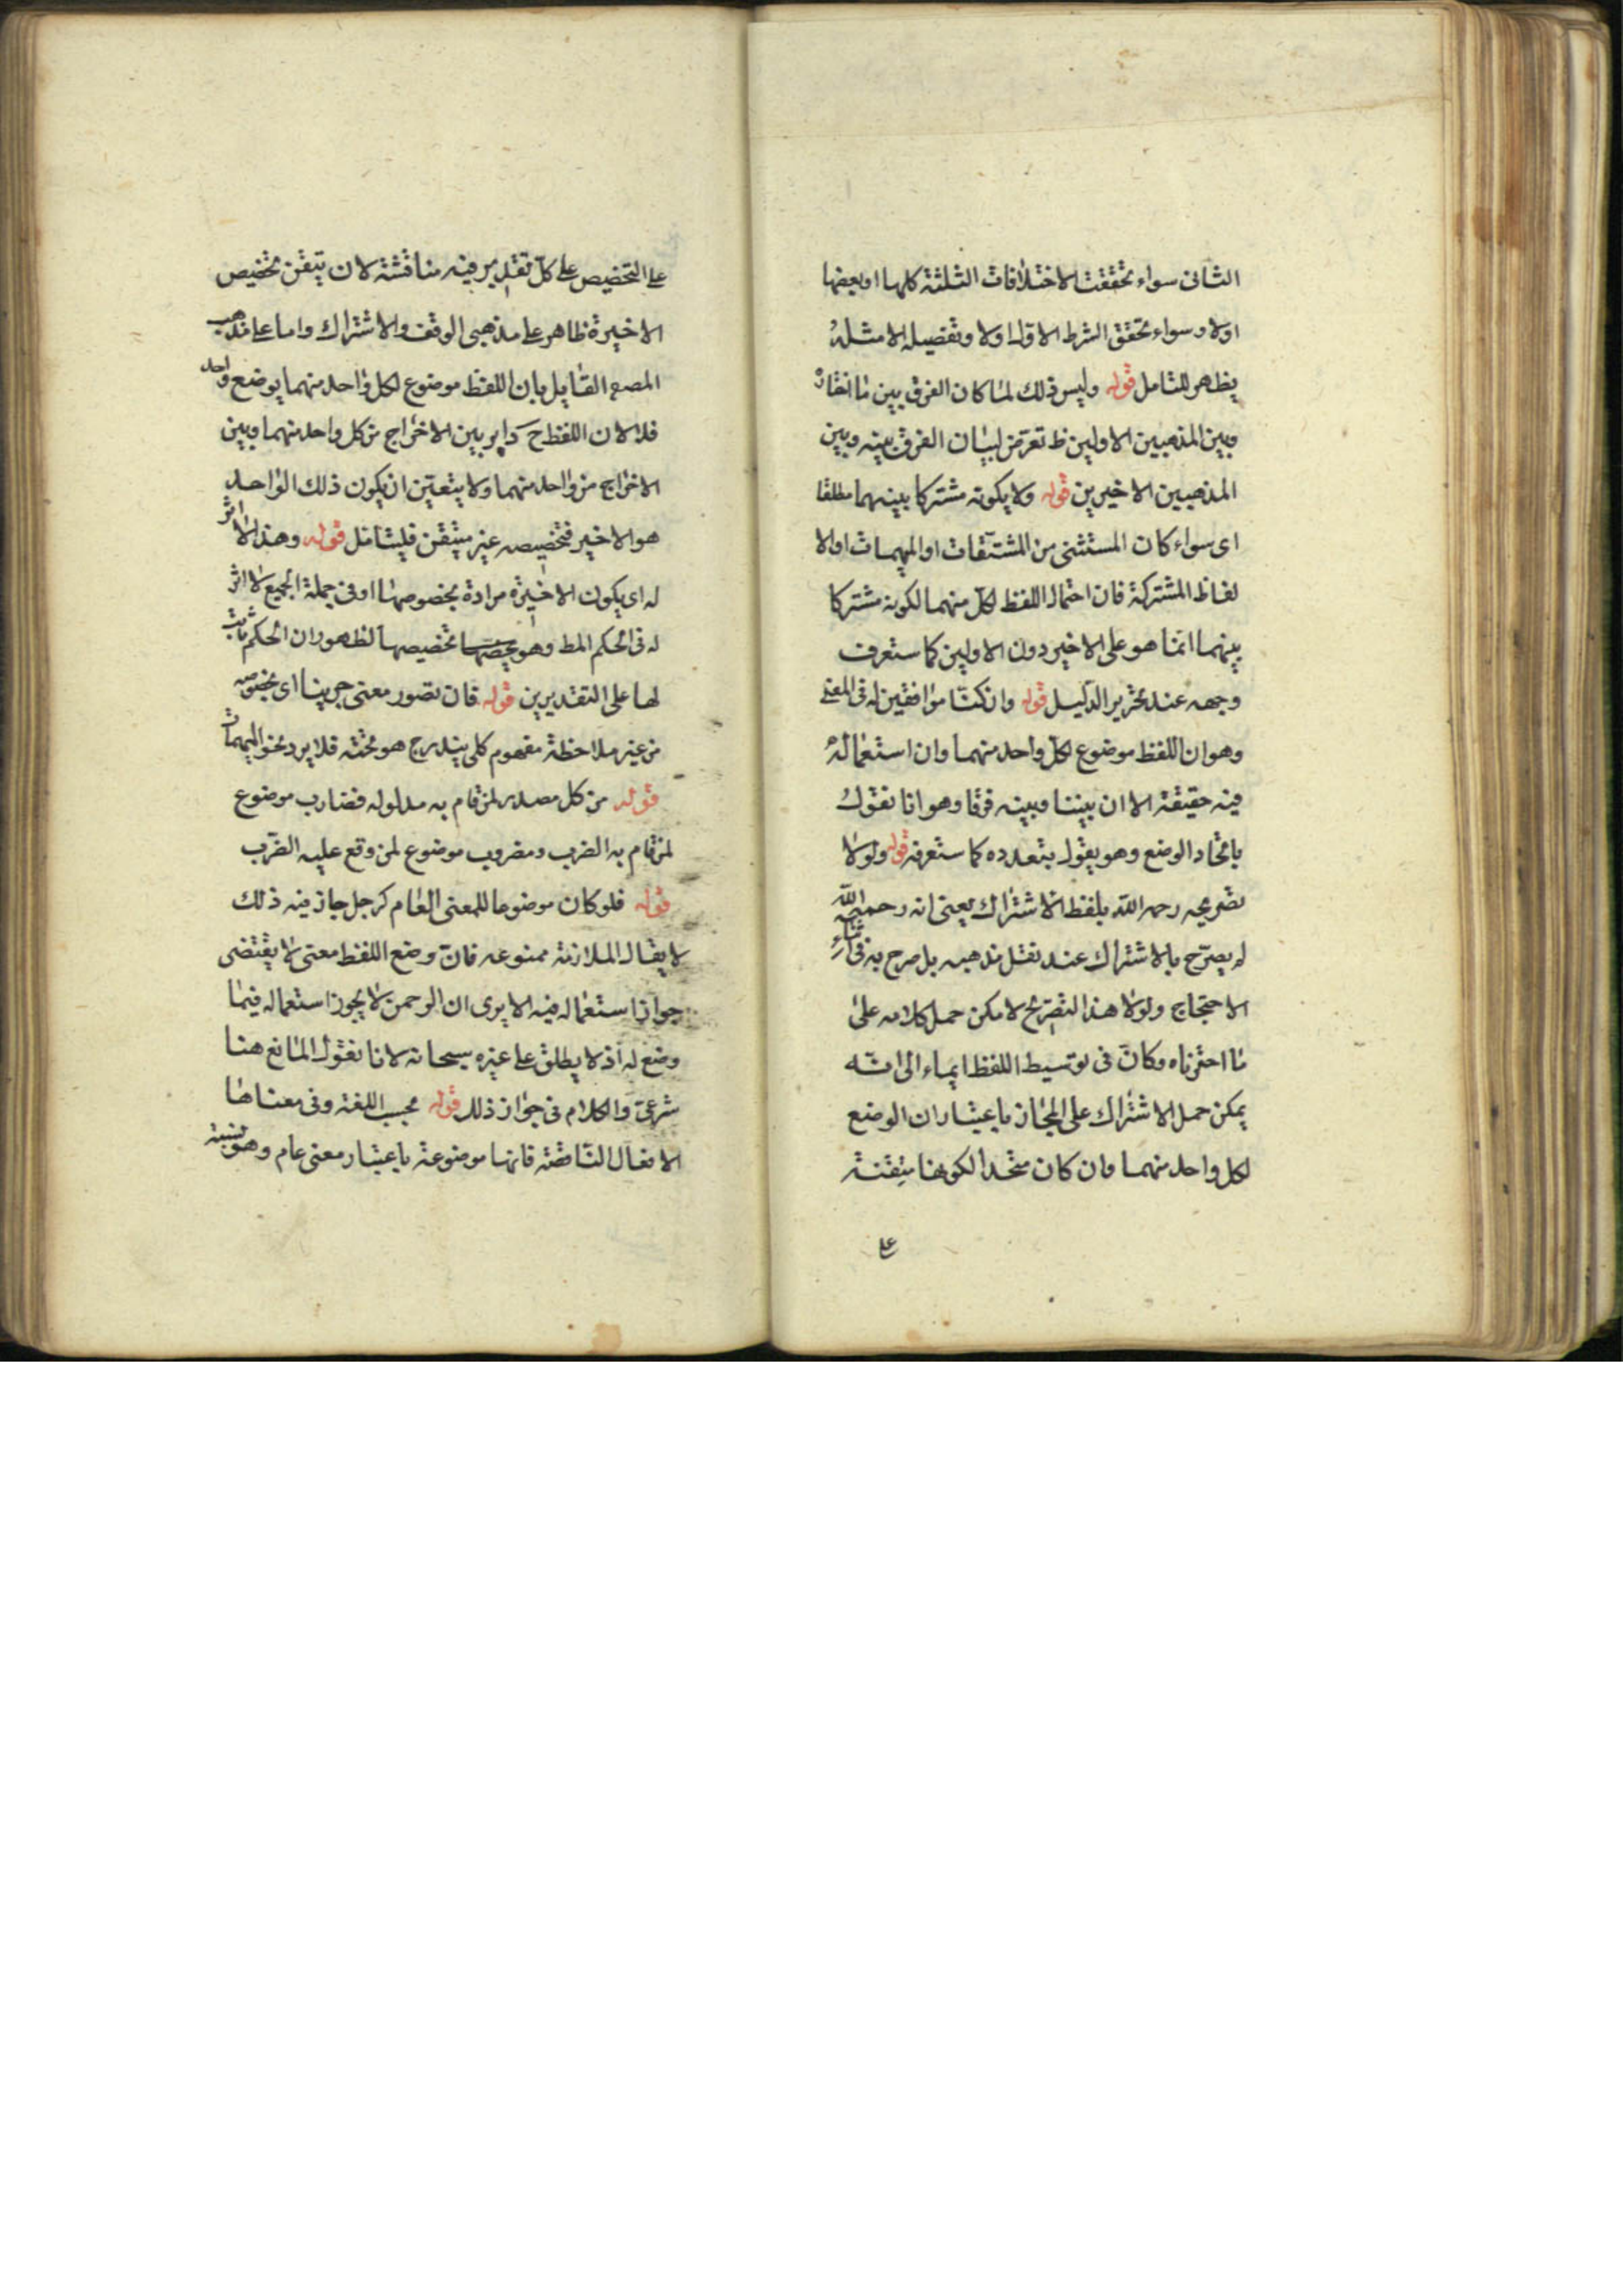 الثانى سواء تحققت الاختلافات الثلثة كلها او بعضها
اولا وسواء تحقق الشرط الاول اولا وتفصيله الامثلة
يظهر للتامل قوله وليس ذلك لما كان الفرق بين ما
وبين المذهبين الاولين ظ تعرض لبيان الفرق بينه وبين
المذهبين الاخيرين قوله ولا يكونه مشتركا بينهما مطلقا
اى سواء كان المستثنى من المشتقات او المبهمات او الا
لفاظ المشتركة فان احتمال اللفظ لكل منهما لكونه مشتركا
بينهما انما هو على الاخير دون الاولين كما ستعرف
وجهه عند تحرير الدليل قوله وان كنا موافقين له فى المعنى
وهو ان اللفظ موضوع لكل واحد منهما وان استعماله
فيه حقيقة الا ان بيننا وبينه فرقا وهو انا نقول
باتحاد الوضع وهو يقول بتعدده كما ستعرفه قوله ولولا
تصريحه رحمه الله بلفظ الاشتراك يعنى انه رحمه الله
لم يصرح بالاشتراك عند نقل مذهبه بل صرح به فى اثناء
الاحتجاج ولولا هذا التصريح لامكن حمل كلامه على
ما اخترناه وكان فى توسيط اللفظ ايماء الى انه
يمكن حمل الاشتراك على المجاز باعتبار ان الوضع
لكل واحد منهما وان كان متحدا لكونها متيقنة
على
على التخصيص على كل تقدير فيه مناقشة لان تيقن تخصيص
الاخيرة ظاهر على مذهبى الوقف والاشتراك واما على مذهب
المصـ القايل بان اللفظ موضوع لكل واحد منهما بوضع واحد
فلا لان اللفظ ح داير بين الاخراج من كل واحد منهما وبين
الاخراج من واحد منهما ولا يتعين ان يكون ذلك الواحد
هو الاخير فتخصيصه غير متيقن فليتامل قوله وهذا لا اثر
له اى يكون الاخيرة مرادة بخصوصها او فى جملة الجميع لا اثر
له فى الحكم المط وهو تخصيصها لظهور ان الحكم ثابت
لها على التقديرين قوله فان تصور معنى جزئيا اى بخصوصه
من غير ملاحظة مفهوم كلى يندرج هو تحته فلا يرد نحو المبهمات
قوله من كل مصدر لمن قام به مدلوله فضارب موضوع
لمن قام به الضرب ومضروب موضوع لمن وقع عليه الضرب
قوله فلو كان موضوعا للمعنى العام كرجل جاز فيه ذلك
لا يقال الملازمة ممنوعه فان وضع اللفظ معنى لا يقتضى
جواز استعماله فيه الا يرى ان الرحمن لا يجوز استعماله فيما
وضع له اذ لا يطلق على غيره سبحانه لانا نقول المانع هنا
شرعى والكلام فى جواز ذلك قوله بحسب اللغة وفى معناها
الافعال الناقصة فانها موضوعة باعتبار معنى عام وهو نسبة